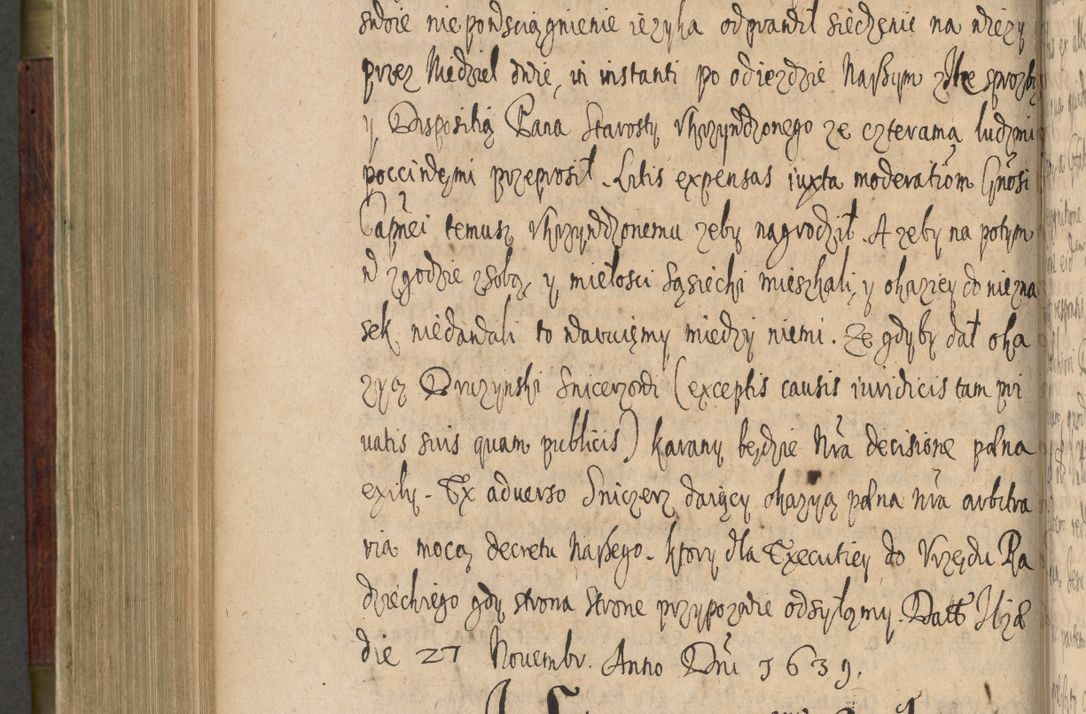 swoie niepowsciągnienie ięzyka odprawił siedzenie na wieży
przez Niedziel dwie, in instanti po odiezdzie Naszym z Ilże sprozby
y Dispositią Pana Starosty Vkrzywdzonego ze czterama ludzmi
pocciwęmi przeprosił. Litis expensas iuxta moderatiom Gnosi
Capnei temusz Vkrzywdzonemu zeby nagrodził. A zeby na potym
w zgodzie zsobą, y miełosci Sąsiecki mieszkali, y okaziey do niezna
sek niedawali to waruięmy miedzy niemi. Ze gdyby dał oka
zyą Druzynski Snicerzowi (exceptis causis iuridicis tam pri
uatis suis quam publicis) karany będzie Nra decisione pæna
exily. Ex aduerso Sniczerz daiący okazyą pæna nra arbitra
ria mocą decretu Naszego. ktory dla Executiey do Vrzędu Ra
dzieckiego gdy strona strone przypozwie odsyłamy. Datt Ilzæ
die 27 Nouembr. Anno Dni 1639.